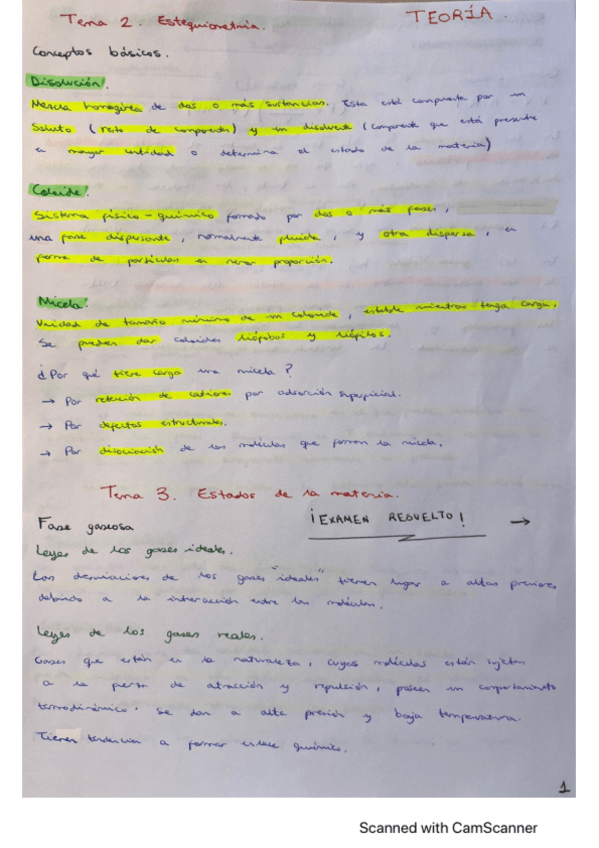 TEORÍA.
Tema 2. Estequiometría.
Conceptos básicos.
Disolución.
Mezcla homogénea de dos o más sustancias. Esta está compuesta por un
Soluto (resto de componentes) y un disolvente (componente que está presente
en mayor cantidad o determina el estado de la materia)
Coloide.
Sistema físico-químico formado por dos o más fases,
una fase dispersante, normalmente fluida, y otra dispersa, en
forma de partículas en menor proporción.
Micela.
Unidad de tamaño mínimo de un coloide, estable mientras tenga carga.
Se pueden dar coloides liófobos y liófilos.
¿Por qué tiene carga una micela?
→ Por retención de cationes por adsorción superficial.
→ Por defectos estructurales.
→ Por disociación de las moléculas que forman la micela.
Tema 3. Estados de la materia.
Fase gaseosa
¡EXAMEN RESUELTO! →
Leyes de los gases ideales.
Las desviaciones de los gases "ideales" tienen lugar a altas presiones
debido a la interacción entre las moléculas.
Leyes de los gases reales.
Gases que están en la naturaleza, cuyas moléculas están sujetas
a la fuerza de atracción y repulsión, poseen un comportamiento
termodinámico. Se dan a alta presión y baja temperatura.
Tienen tendencia a formar enlace químico.
1
Scanned with CamScanner